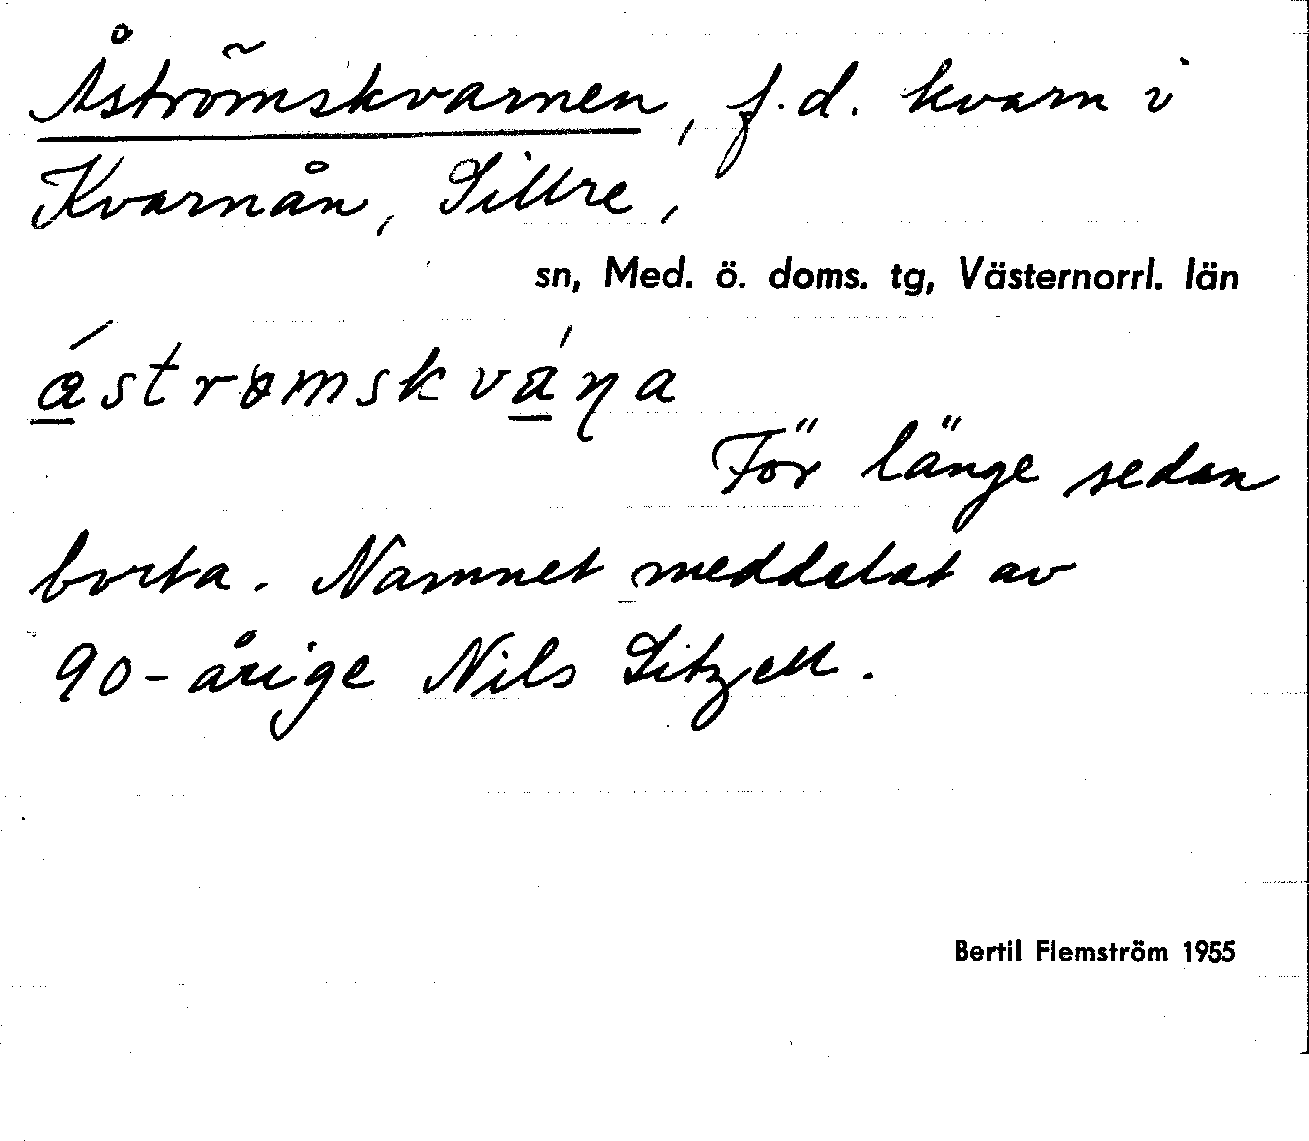 Åströmskvarnen, f.d. kvarn i
Kvarnån, Sillre,
sn, Med. ö. doms. tg, Västernorrl. län
För länge sedan
borta. Namnet meddelat av
90-årige Nils Sitzell.
Bertil Flemström 1955